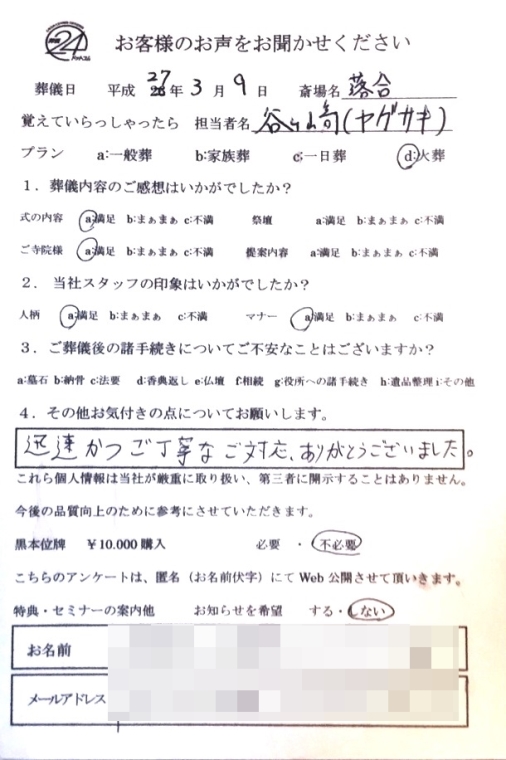 24
お客様のお声をお聞かせください
葬儀日 平成 27年 3月 9日 斎場名 落合
覚えていらっしゃったら 担当者名 谷ヶ崎(ヤゲサキ)
プラン a:一般葬 b:家族葬 c:一日葬 d:火葬
1.葬儀内容のご感想はいかがでしたか?
式の内容 a:満足 b:まぁまぁ c:不満 祭壇 a:満足 b:まぁまぁ c:不満
ご寺院様 a:満足 b:まぁまぁ c:不満 提案内容 a:満足 b:まぁまぁ c:不満
2.当社スタッフの印象はいかがでしたか?
人柄 a:満足 b:まぁまぁ c:不満 マナー a:満足 b:まぁまぁ c:不満
3.ご葬儀後の諸手続きについてご不安なことはございますか?
a:墓石 b:納骨 c:法要 d:香典返し e:仏壇 f:相続 g:役所への諸手続き h:遺品整理 i:その他
4.その他お気付きの点についてお願いします。
迅速かつご丁寧なご対応、ありがとうございました。
これら個人情報は当社が厳重に取り扱い、第三者に開示することはありません。
今後の品質向上のために参考にさせていただきます。
黒本位牌 ¥10.000購入 必要 ・ 不必要
こちらのアンケートは、匿名(お名前伏字)にて Web 公開させて頂いきます。
特典・セミナーの案内他 お知らせを希望 する・しない
お名前
メールアドレス